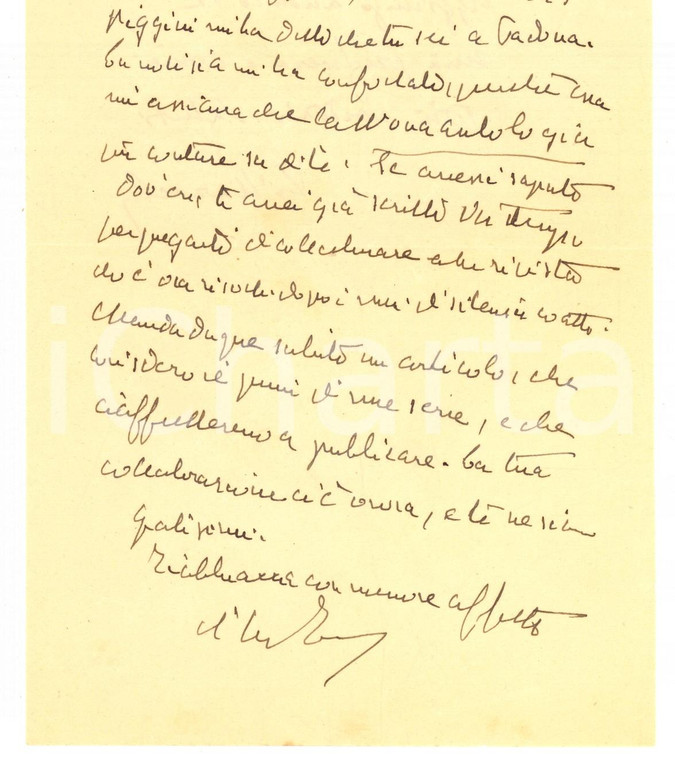 mi ha detto che tu sei a Padova.
La notizia mi ha confortato, perché essa
mi assicura che la Nuova Antologia
può contare su di te. Se avessi saputo
dov'eri, ti avrei già scritto
per pregarti di collaborare alla rivista
che è ora risorta dopo i mesi di silenzio coatto.
Manda dunque subito un articolo, che
considero il primo di una serie, e che
ci affretteremo a pubblicare. La tua
collaborazione ci è onora, e te ne siamo
gratissimi.
Ti abbraccia con memore affetto
iCharta